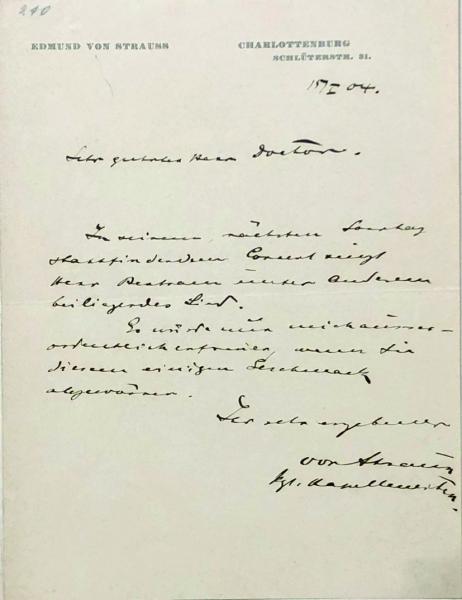 210
EDMUND VON STRAUSS
CHARLOTTENBURG
SCHLÜTERSTR. 31.
15/I 04.
Sehr geehrter Herr Doctor.
In seinem, nächsten Sonntag
stattfindendem Concert singt
Herr Bertram unter Anderem
beiliegendes Lied.
Es würde nun mich ausser-
ordentlich erfreuen, wenn Sie
diesem einigen Geschmack
abgewännen.
Ihr sehr ergebener
von Strauss
kgl. Kapellmeister.